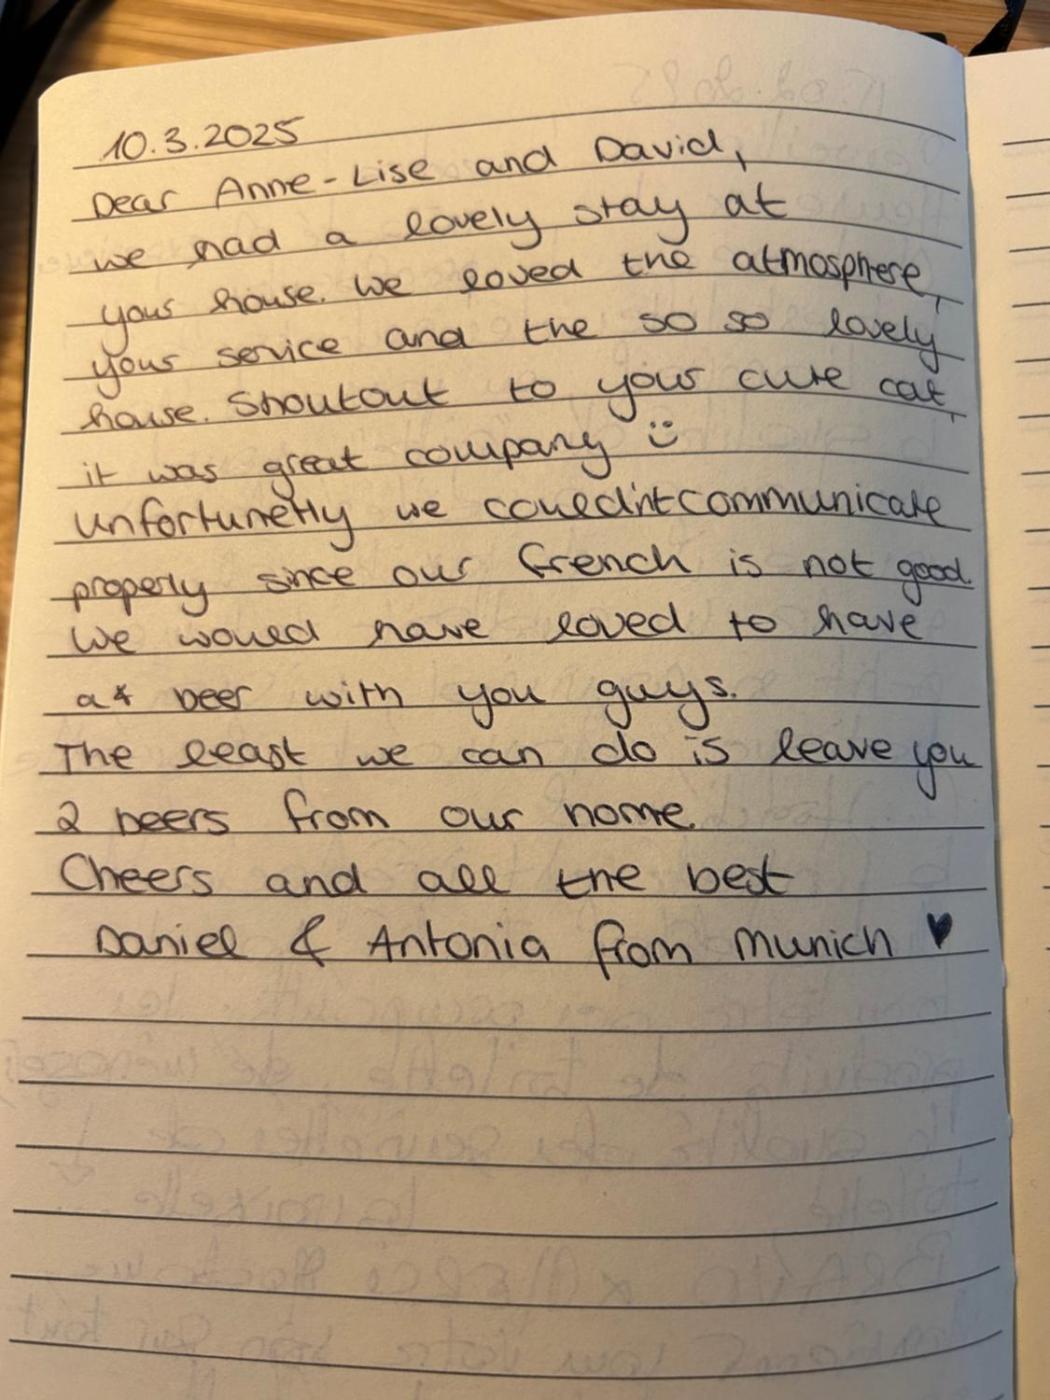 10.3.2025
Dear Anne-Lise and David,
we had a lovely stay at
your house. We loved the atmosphere,
your service and the so so lovely
house. Shoutout to your cute cat,
it was great company :)
Unfortunetly we couldn't communicate
properly since our french is not good.
We would have loved to have
a beer with you guys.
The least we can do is leave you
2 beers from our home.
Cheers and all the best
Daniel & Antonia from Munich ♥